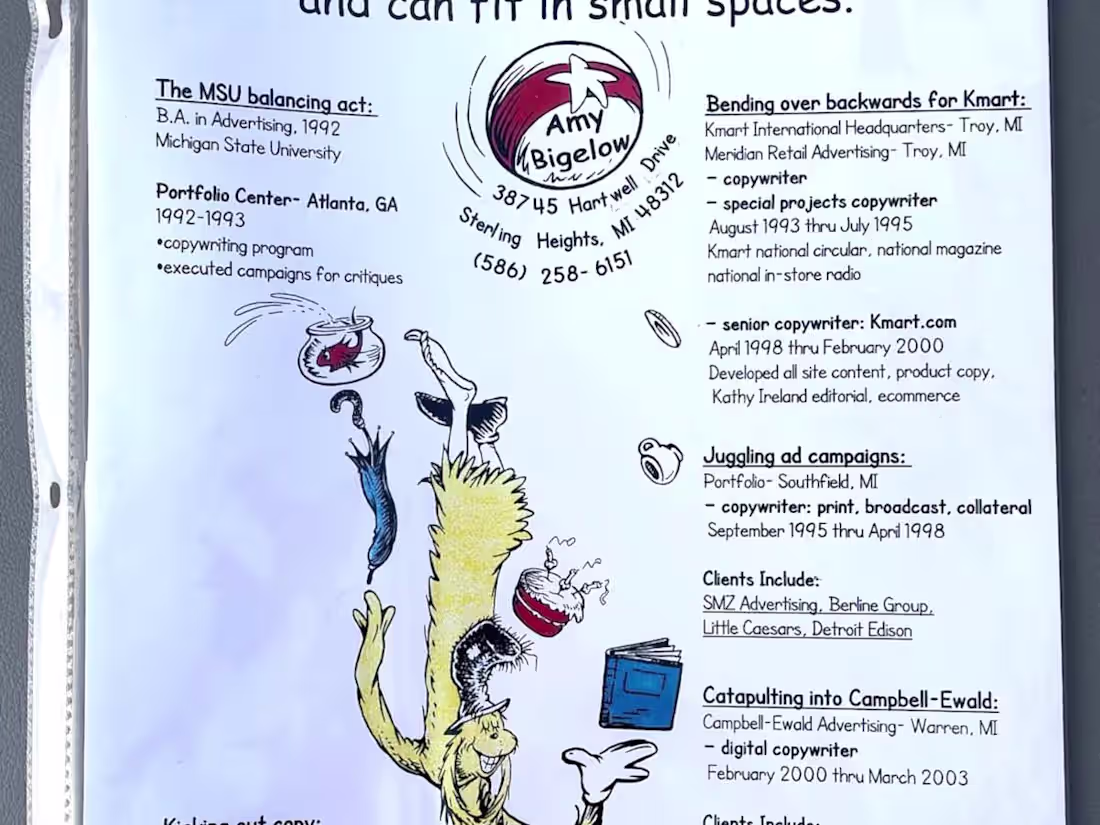 and can fit in small spaces.
The MSU balancing act:
B.A. in Advertising, 1992
Michigan State University
Portfolio Center- Atlanta, GA
1992-1993
•copywriting program
•executed campaigns for critiques
Amy
Bigelow
38745 Hartwell Drive
Sterling Heights, MI 48312
(586) 258-6151
Bending over backwards for Kmart:
Kmart International Headquarters- Troy, MI
Meridian Retail Advertising- Troy, MI
- copywriter
- special projects copywriter
August 1993 thru July 1995
Kmart national circular, national magazine
national in-store radio
- senior copywriter: Kmart.com
April 1998 thru February 2000
Developed all site content, product copy,
Kathy Ireland editorial, ecommerce
Juggling ad campaigns:
Portfolio- Southfield, MI
- copywriter: print, broadcast, collateral
September 1995 thru April 1998
Clients Include:
SMZ Advertising, Berline Group,
Little Caesars, Detroit Edison
Catapulting into Campbell-Ewald:
Campbell-Ewald Advertising- Warren, MI
- digital copywriter
February 2000 thru March 2003
Kicking out copy:
Clients Include: